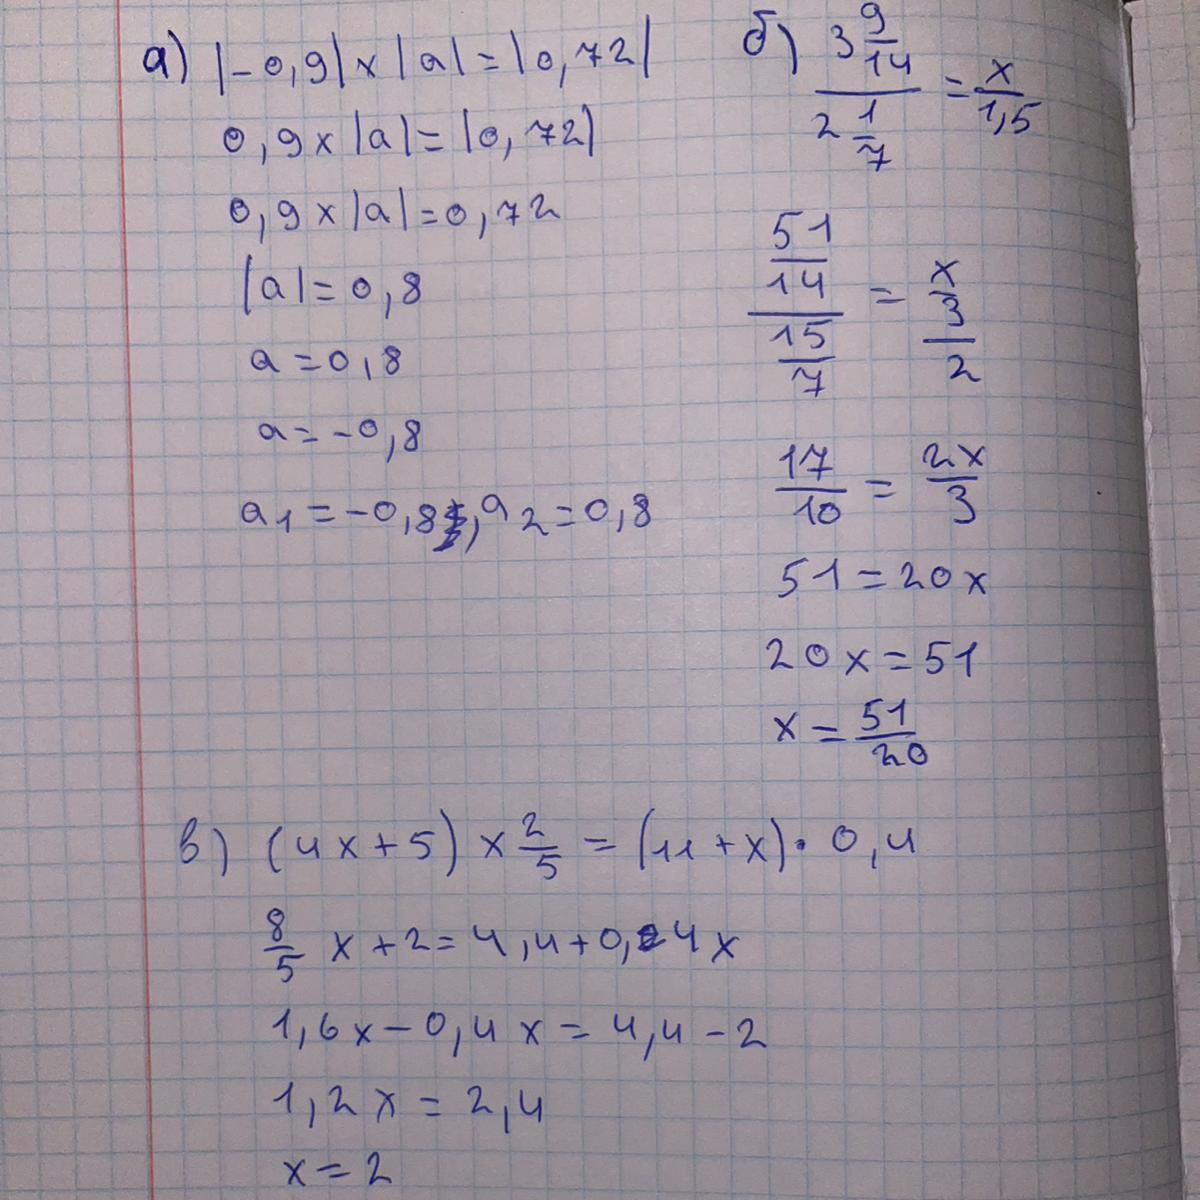 а) |-0,9| x |a| = |0,72|
0,9 x |a| = |0,72|
0,9 x |a| = 0,72
|a| = 0,8
a = 0,8
a = -0,8
a1 = -0,8, a2 = 0,8
б) 3 9/14 / 2 1/7 = x/1,5
51/14 / 15/7 = x / 3/2
17/10 = 2x/3
51 = 20x
20x = 51
x = 51/20
в) (4x + 5) x 2/5 = (11 + x) · 0,4
8/5 x + 2 = 4,4 + 0,4x
1,6x - 0,4x = 4,4 - 2
1,2x = 2,4
x = 2